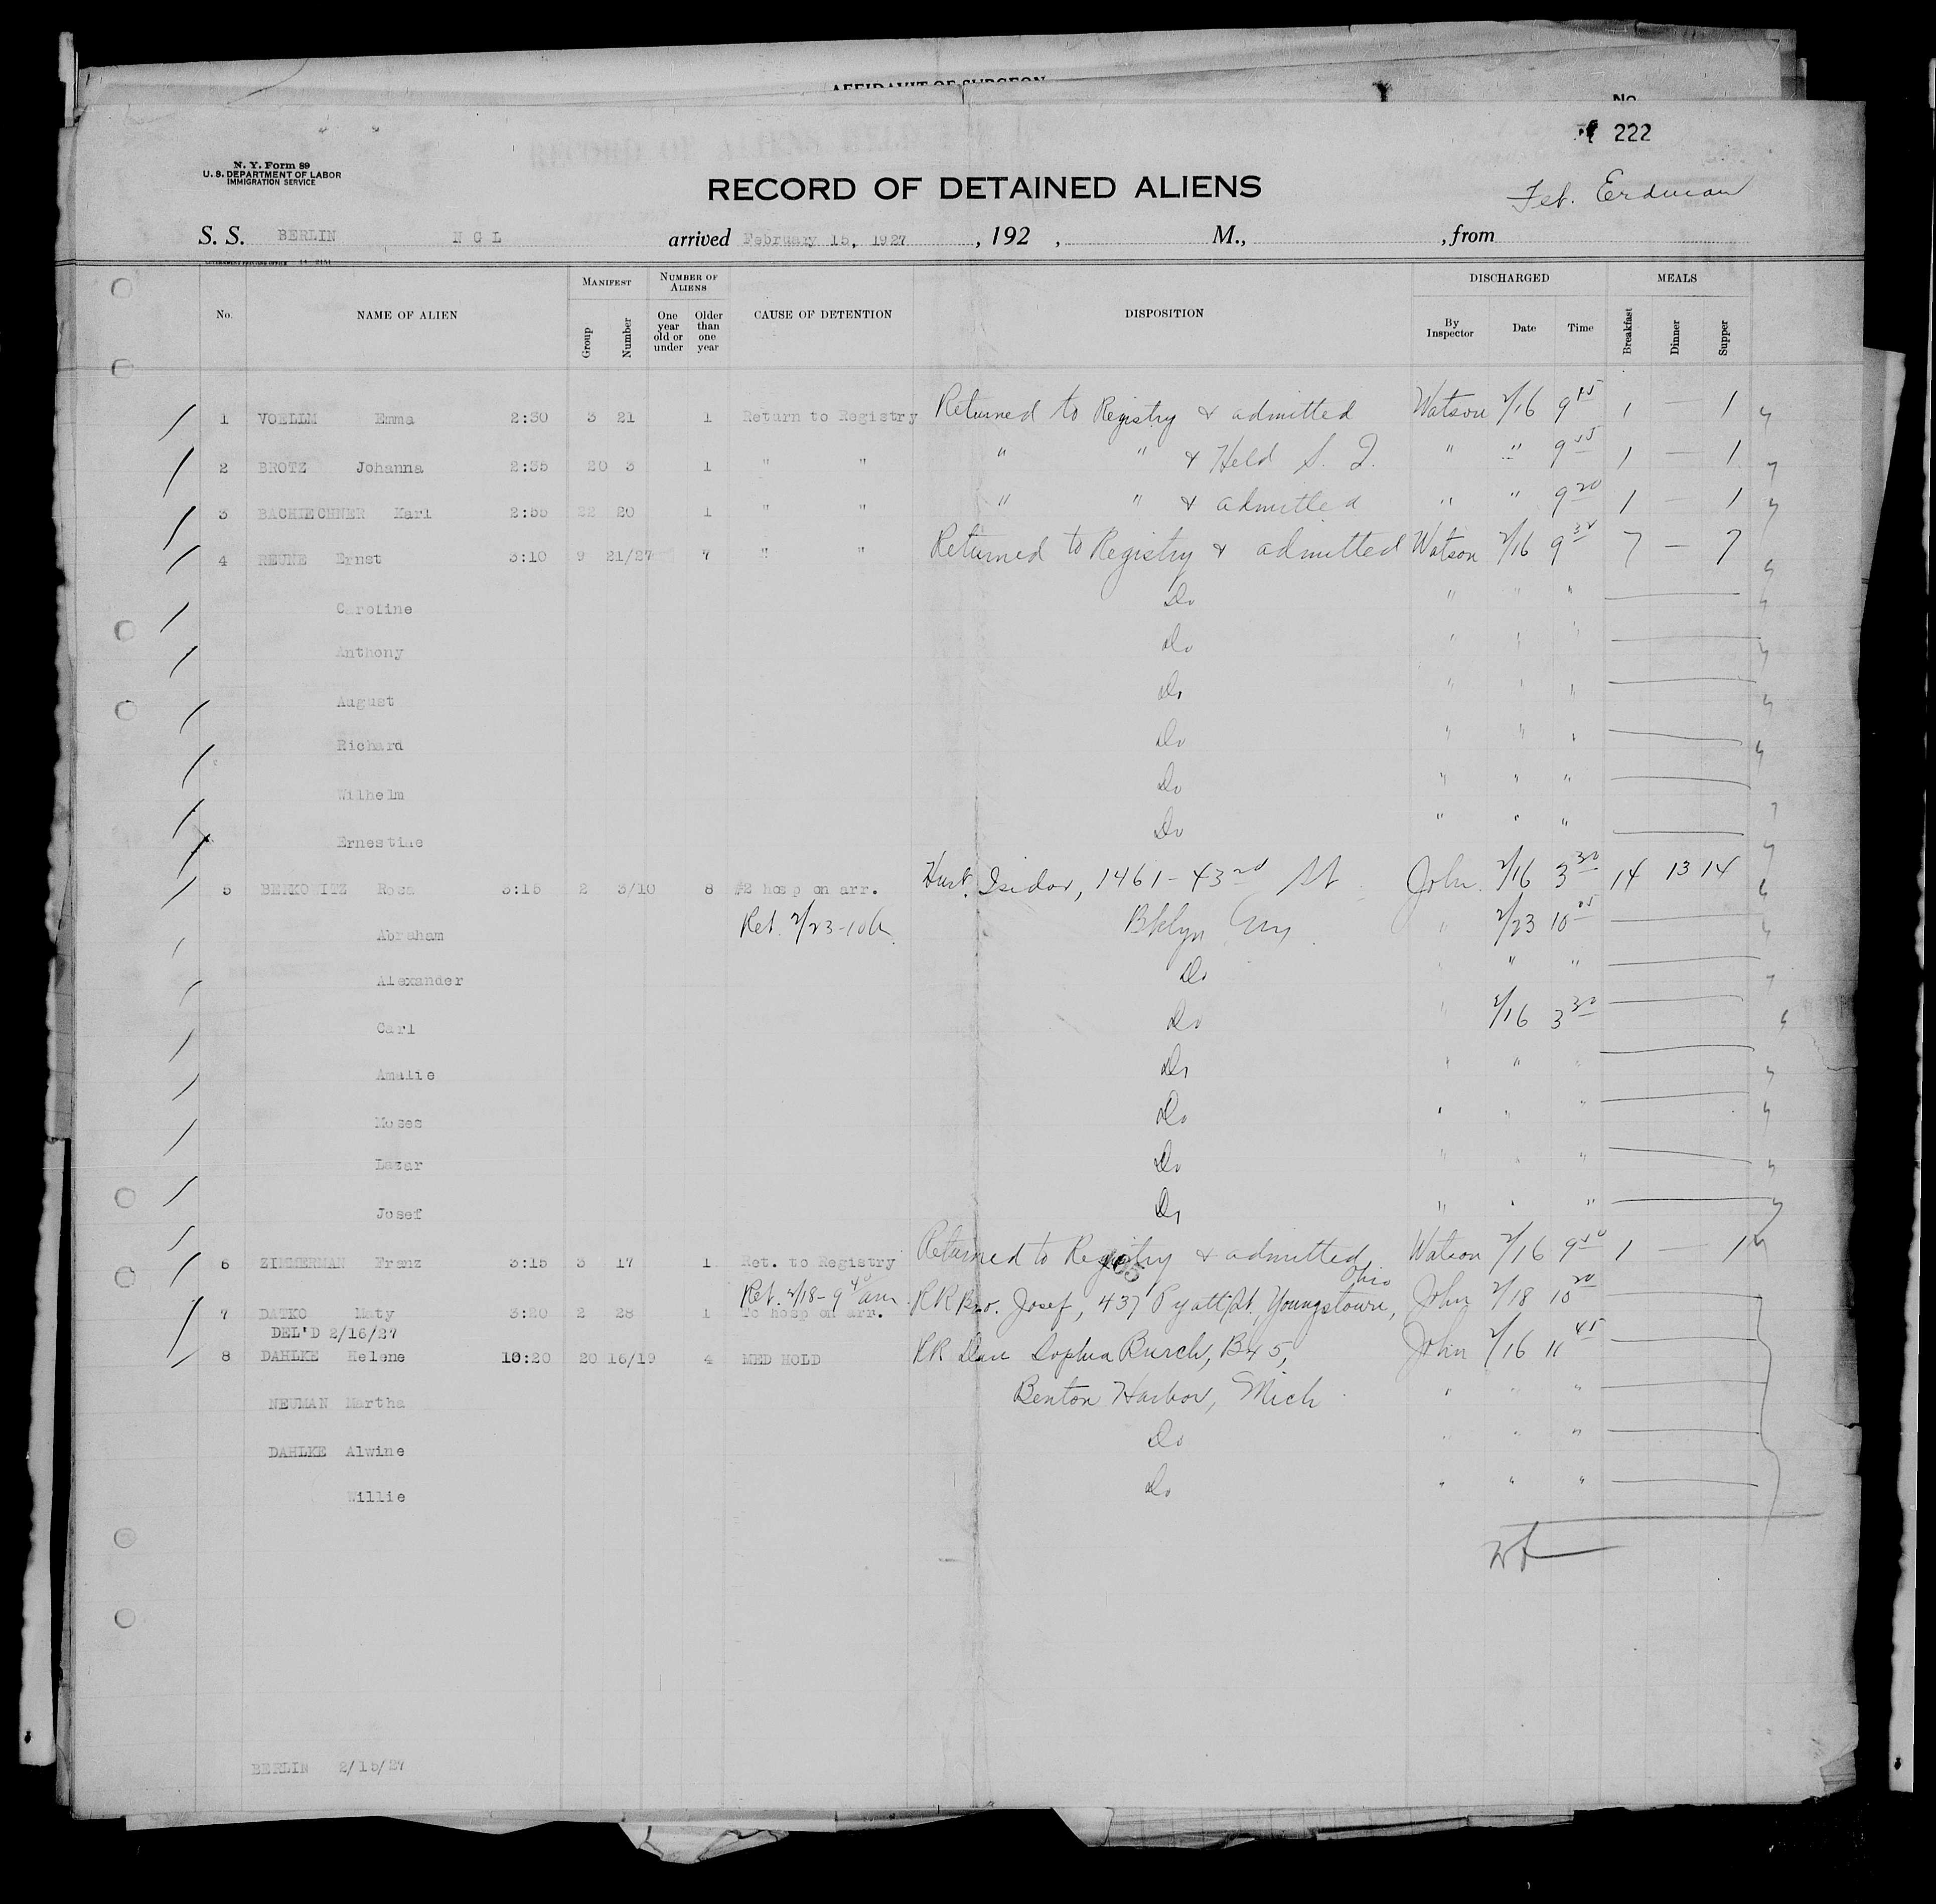 AFFIDAVIT OF SURGEON
No
222
N. Y. Form 89
U. S. DEPARTMENT OF LABOR
IMMIGRATION SERVICE
RECORD OF DETAINED ALIENS
Erdman
S. S. BERLIN N G L arrived February 15, 1927, 192 , M., , from
GOVERNMENT PRINTING OFFICE
MANIFEST NUMBER OF ALIENS DISCHARGED MEALS
No. NAME OF ALIEN Group Number One year old or under Older than one year CAUSE OF DETENTION DISPOSITION By Inspector Date Time Breakfast Dinner Supper
1 VOELLM Emma 2:30 3 21 1 Return to Registry Returned to Registry & admitted Watson 2/16 9 15 1 — 1
2 BROTZ Johanna 2:35 20 3 1 " " " " & Held S. I. " " 9 55 1 — 1
3 BACHIECHNER Karl 2:55 22 20 1 " " " " & admitted " " 9 20 1 — 1
4 REUNE Ernst 3:10 9 21/27 7 " " Returned to Registry & admitted Watson 2/16 9 7 — 7
Caroline Do " " "
Anthony Do " " "
August Do " " "
Richard Do " " "
Wilhelm Do " " "
Ernestine Do " " "
5 BERKOWITZ Rosa 3:15 2 3/10 8 #2 hosp on arr. Husb. Isidor, 1461 - 43rd St John 2/16 3 30 14 13 14
Abraham Ret. 2/23 - 10 Bklyn " 2/23 10 05
Alexander Do " " "
Carl Do " 2/16 3 30
Amalie Do " " "
Moses Do " " "
Lazar Do " " "
Josef Do " " "
6 ZIMMERMAN Franz 3:15 3 17 1 Ret. to Registry Returned to Registry & admitted Watson 2/16 9 50 1 — 1
Ret. 2/18 - 9 40 am Ohio
7 DATKO Maty 3:20 2 28 1 To hosp on arr. RR Bro. Josef, 437 Pyatt St, Youngstown, John 2/18 10 20
DEL'D 2/16/27
8 DAHLKE Helene 10:20 20 16/19 4 MED HOLD RR Dau Sophia Burch, Bx 5, John 2/16 11 45
NEUMAN Martha Benton Harbor, Mich " " "
DAHLKE Alwine Do " " "
Willie Do " " "
BERLIN 2/15/27